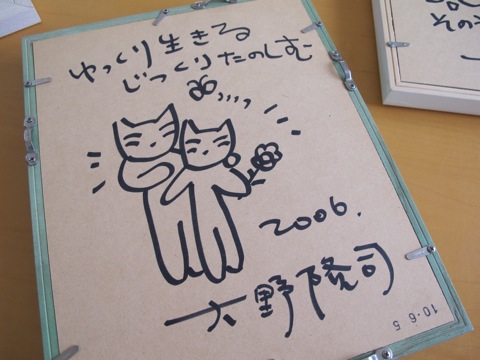 ゆっくり生きる
じっくりたのしむ
2006.
大野隆司
10.6.5